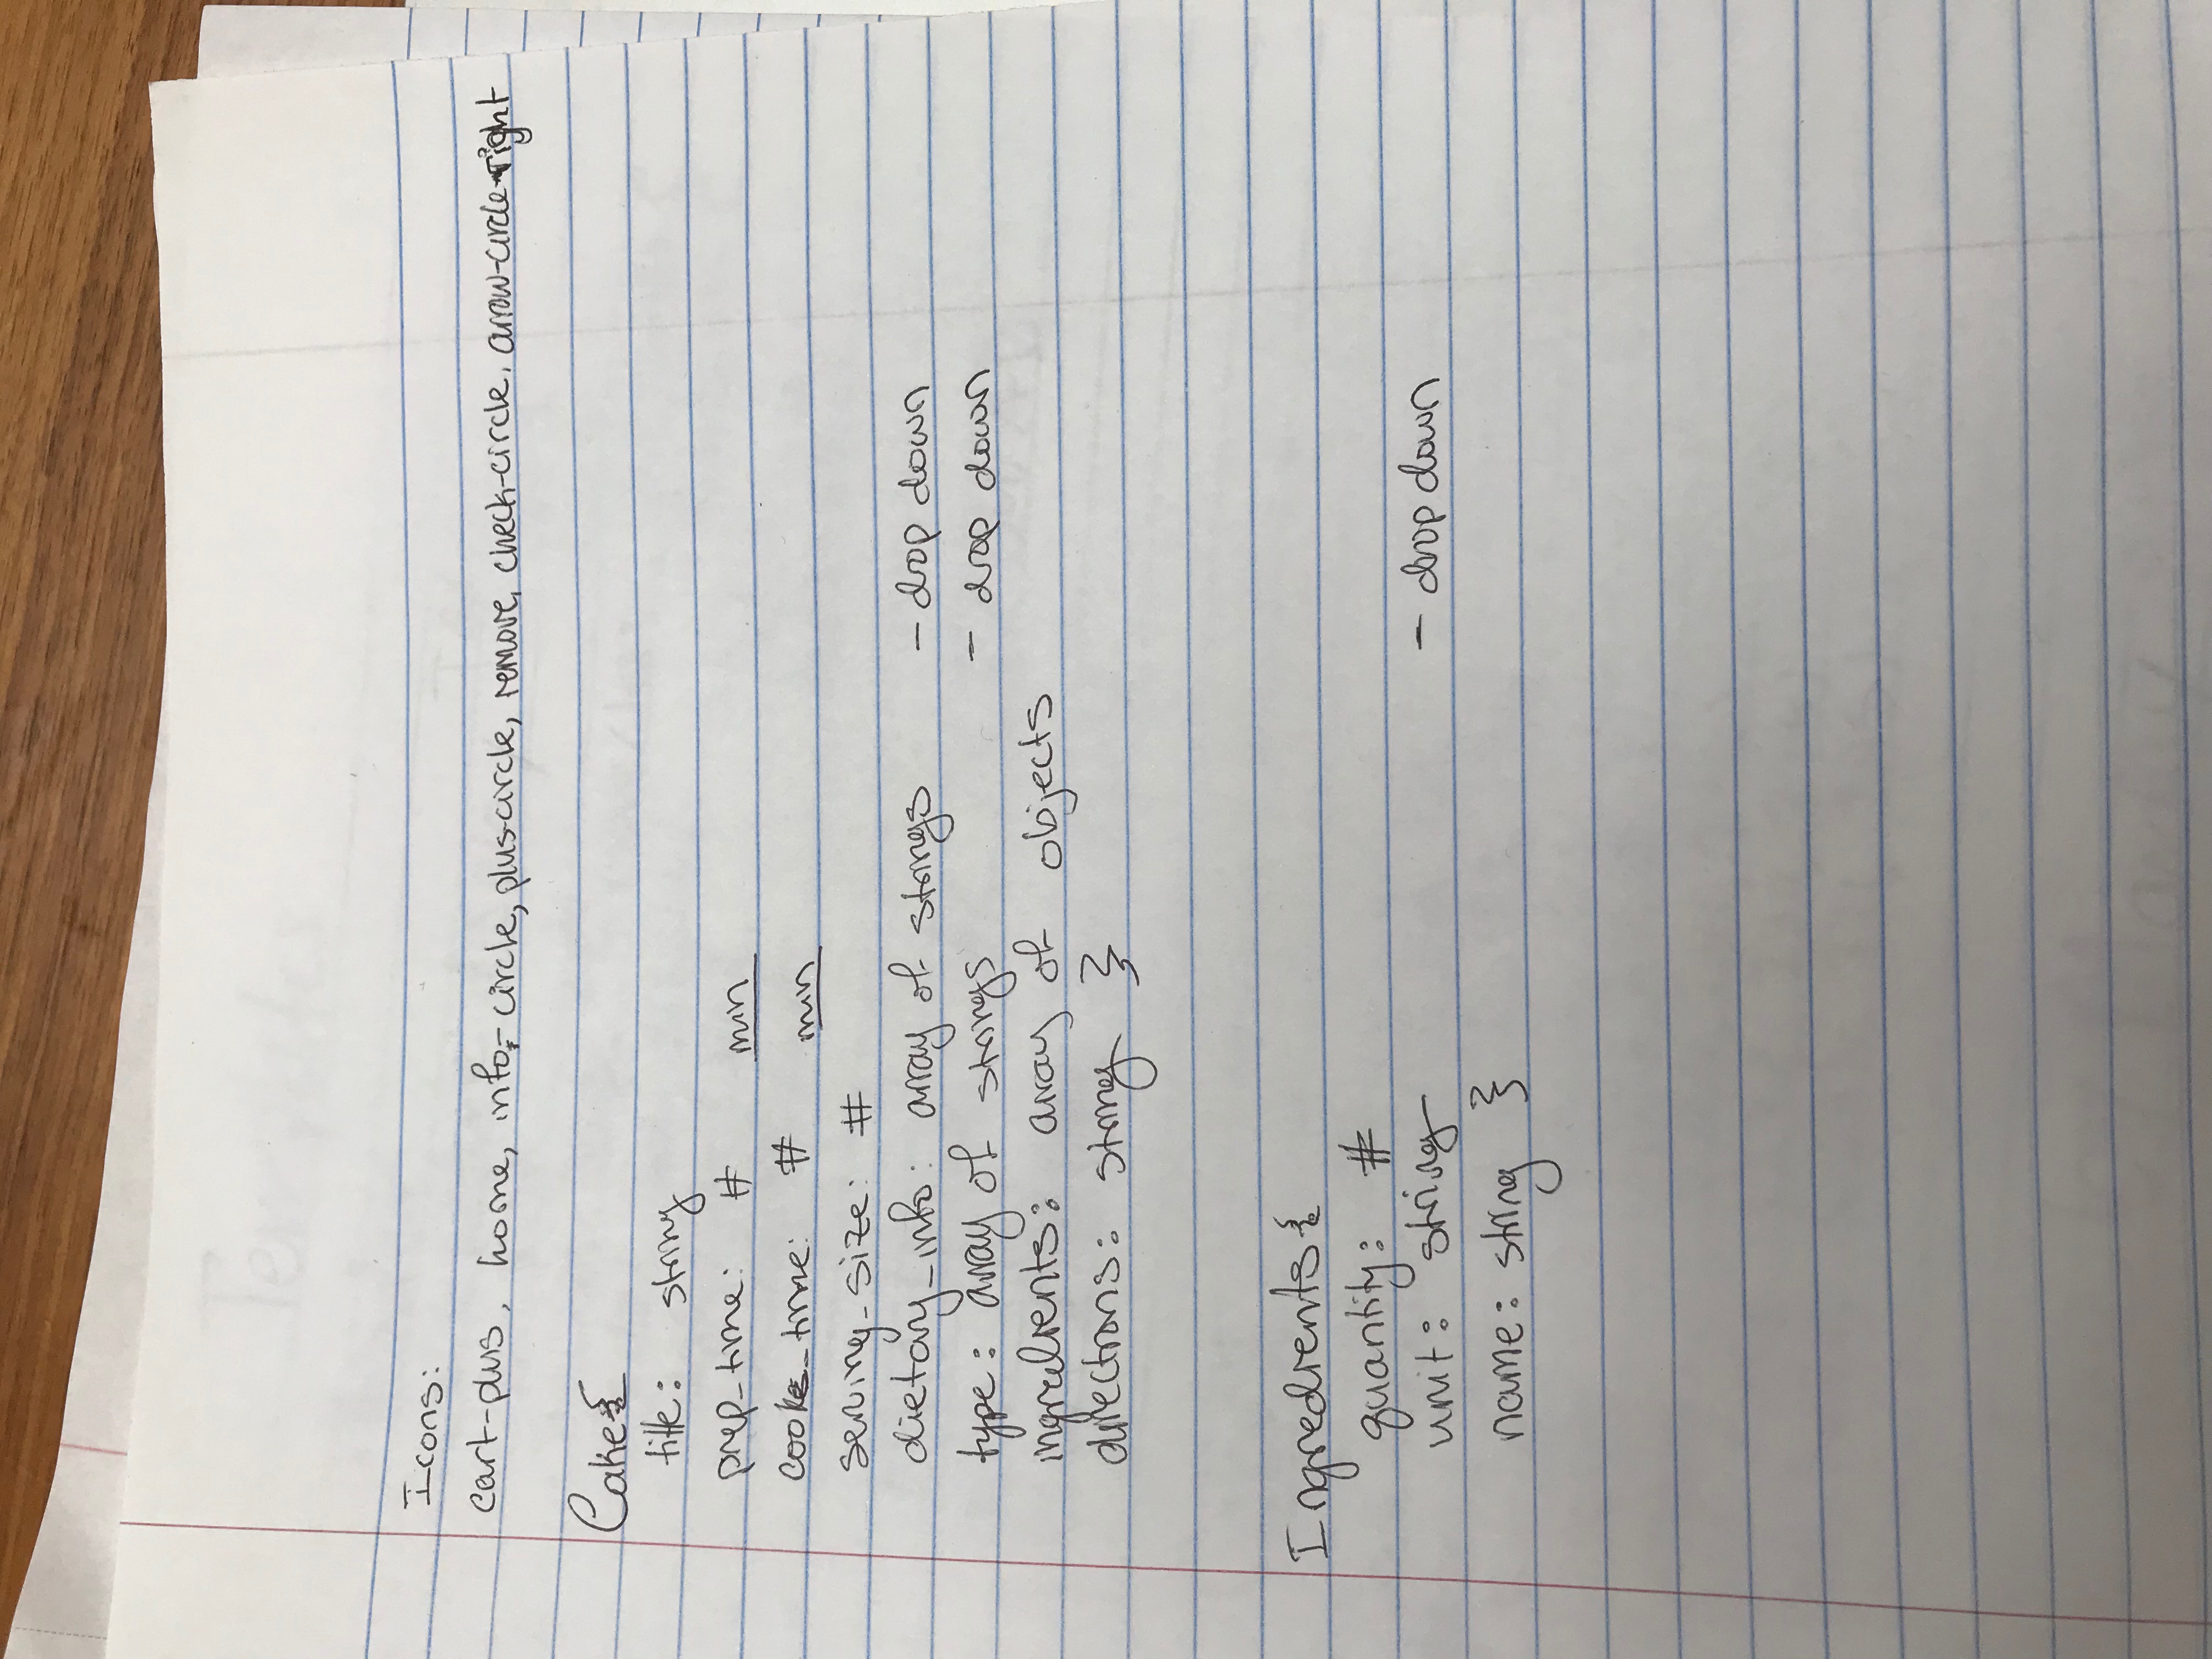 Icons:
cart-plus, home, info-circle, plus-circle, remove, check-circle, arrow-circle-right
Cake {
title: string
prep_time: # min
cook_time: # min
serving_size: #
dietary_info: array of strings - drop down
type: array of strings - drop down
ingredients: array of objects
directions: string }
Ingredients {
quantity: #
unit: string - drop down
name: string }